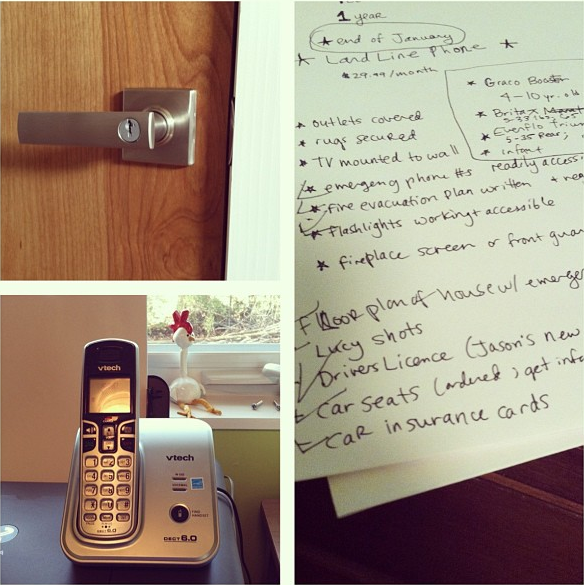 1 year
★ end of January
★ Land Line Phone ★
$29.99/month
★ Graco Booster
4-10 yr. old
★ Britax
★ Evenflo
5-35 Rear;
★ infant
★ outlets covered
★ rugs secured
★ TV mounted to wall
readily access
★ emergency phone #s
★ fire evacuation plan written + nea
★ flashlights working + accessible
★ fireplace screen or front guar
Floor plan of house w/ emerge
Lucy shots
Drivers Licence (Jason's new
Car seats (ordered ; get info
Car insurance cards
vtech
vtech
DECT 6.0
FIND
HANDSET
DECT 6.0